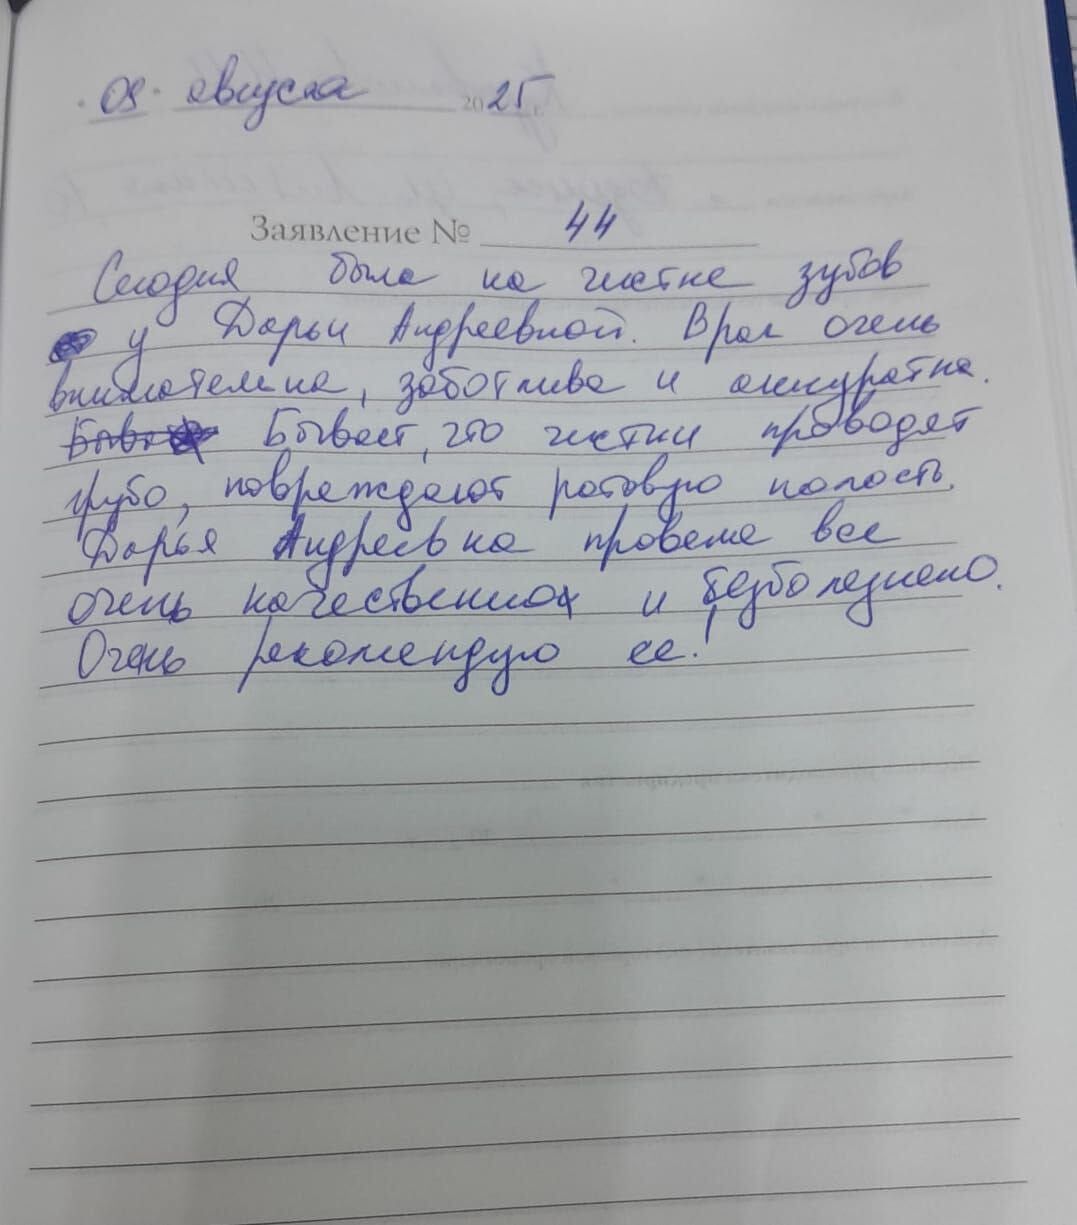 08 августа 2025 г.
Заявление № 44
Сегодня была на чистке зубов
у Дарьи Андреевной. Врач очень
внимательна, заботлива и аккуратна.
Бывает, что чистки проводят
грубо, повреждают ротовую полость.
Дарья Андреевна провела все
очень качественно и безболезнено.
Очень рекомендую ее!